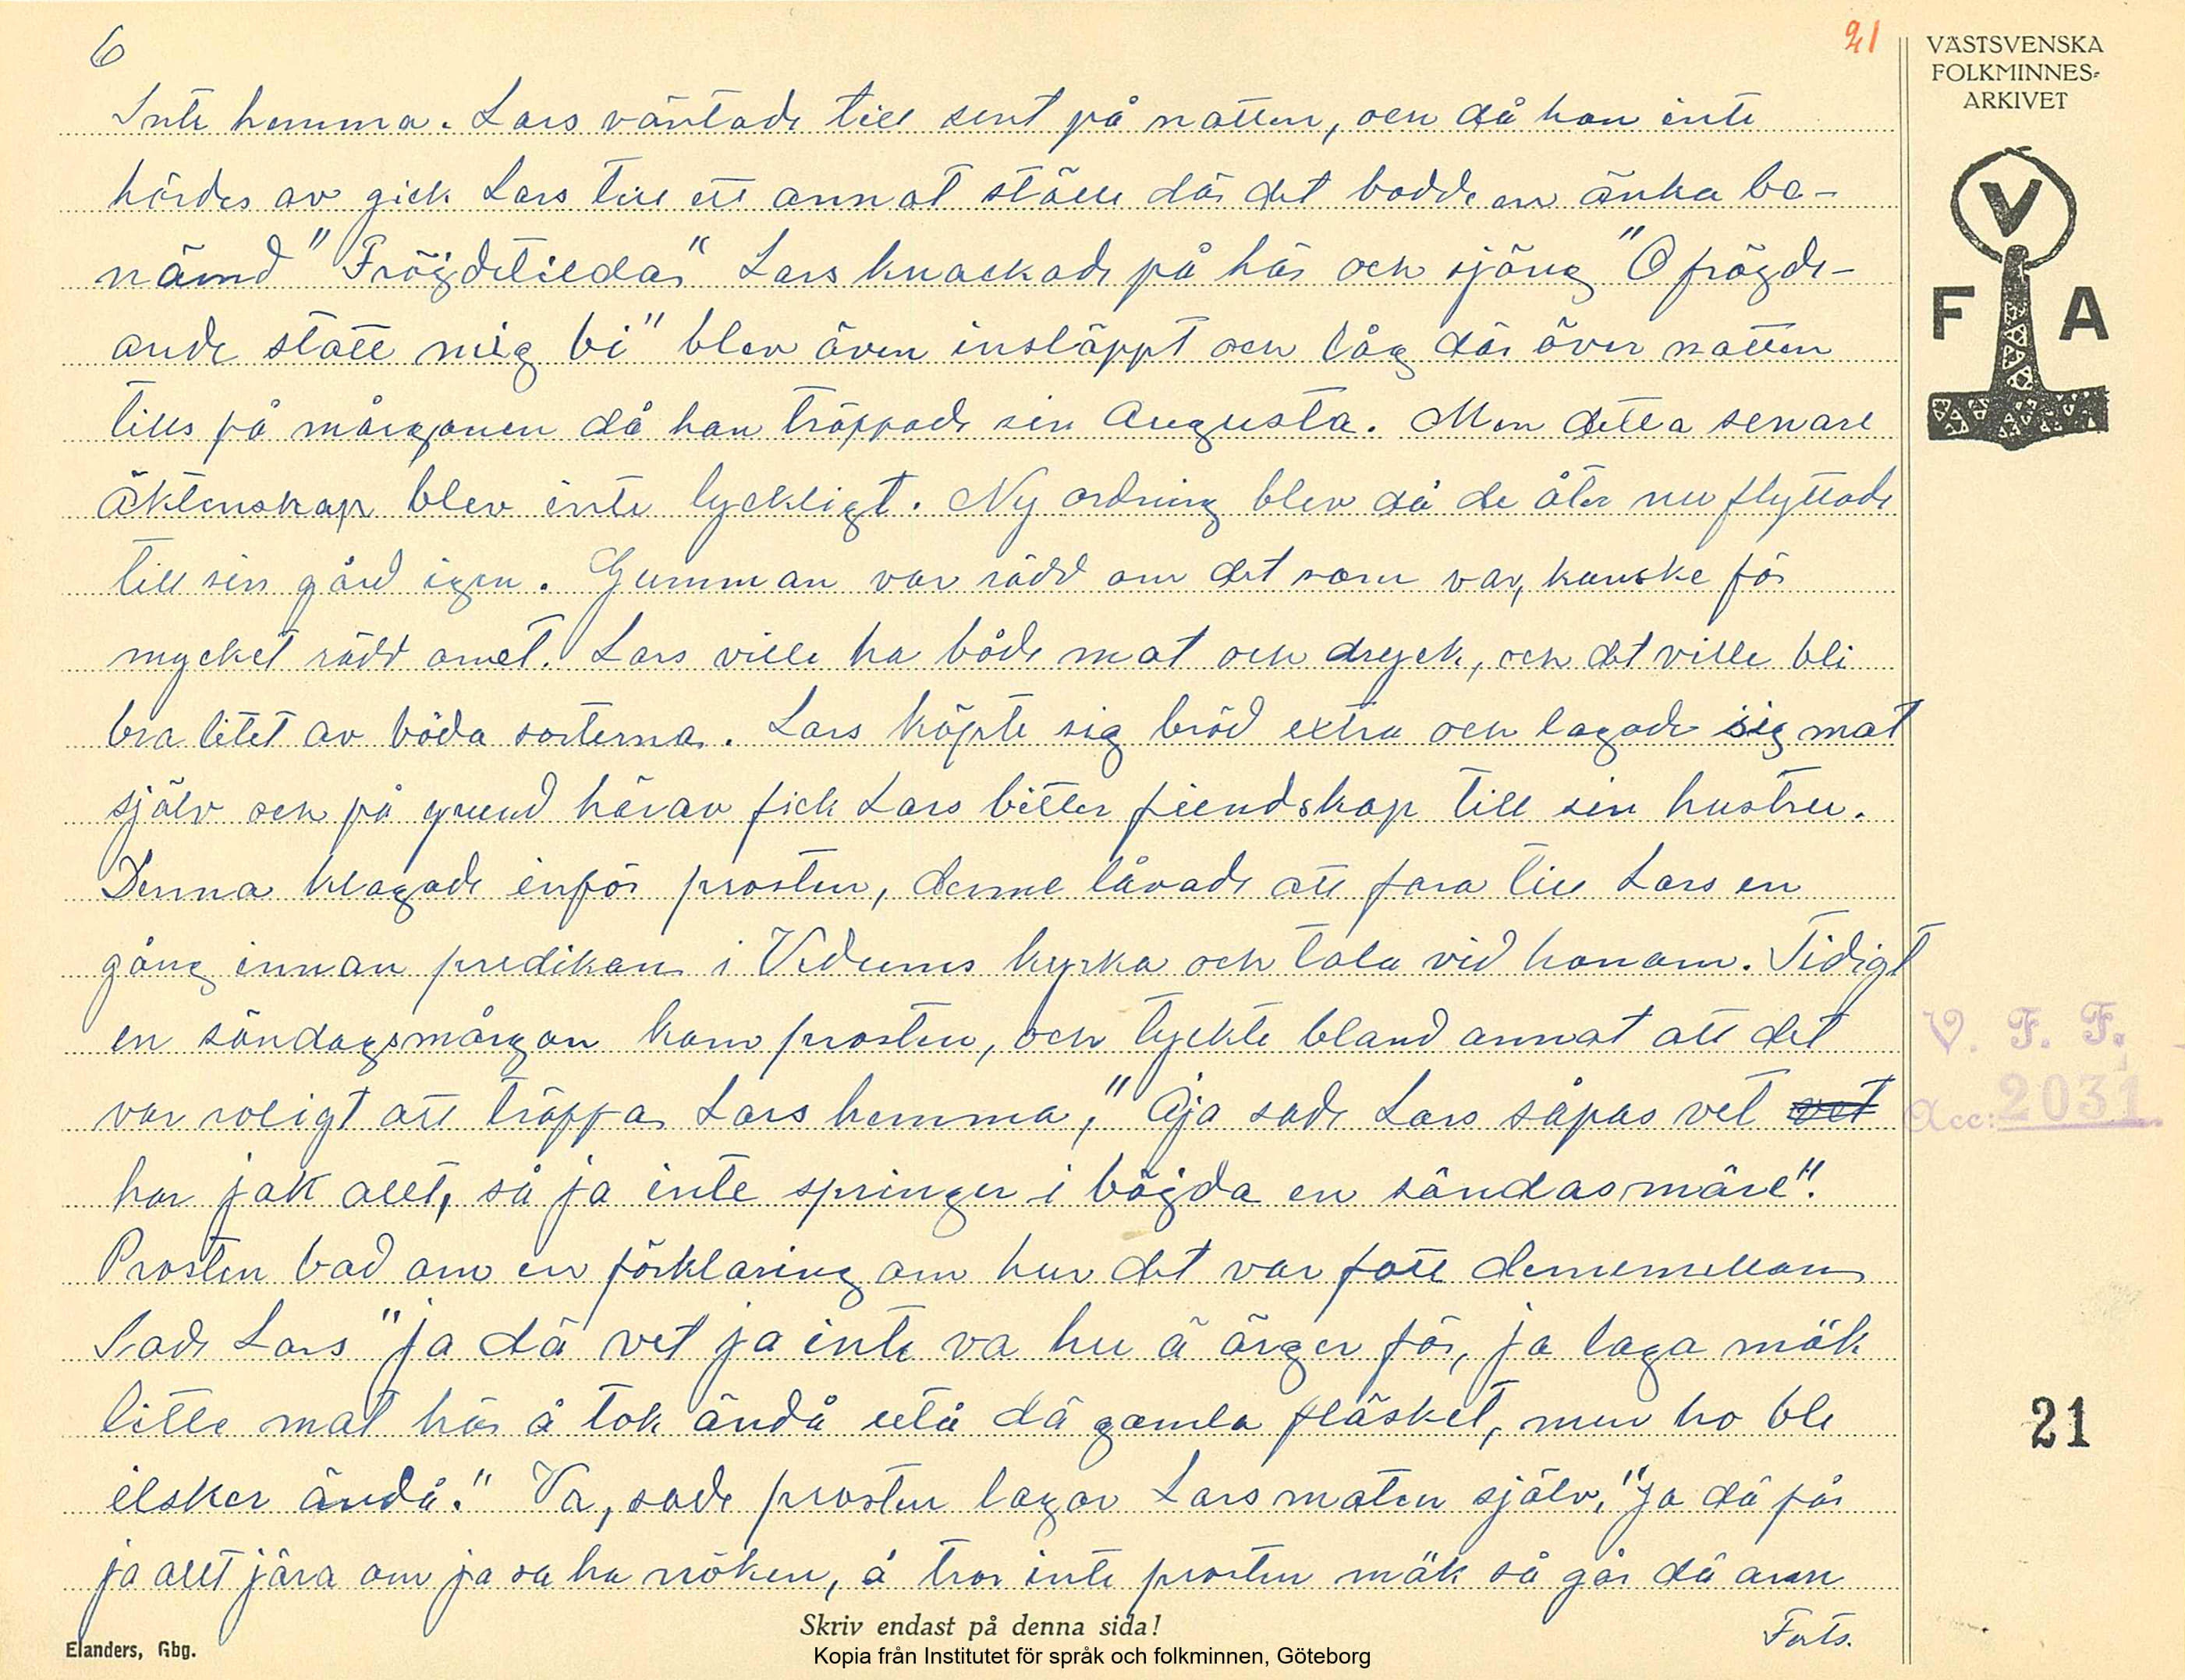 6
21
VÄSTSVENSKA
FOLKMINNES-
ARKIVET
V
F A
Inte hemma. Lars väntade till sent på natten, och då hon inte
hördes av gick Lars till ett annat ställe där det bodde en änka be-
nämd "Fröjdetildas" Lars knackade på här och sjöng "O fröjde-
ande statt mig bi" blev även insläppt och låg där över natten
tills på mårgonen då han träppade sin Augusta. Men detta senare
äktenskap blev inte lyckligt. Ny ordning blev då de åter nu flyttade
till sin gård igen. Gumman var rädd om det som var, kanske för
mycket rädd omet. Lars ville ha både mat och dryck, och det ville bli
bra litet av båda sorterna. Lars köpte sig bröd extra och lagade sig mat
själv och på grund härav fick Lars bitter fiendskap till sin hustru.
Denna klagade inför prosten, denne låvade att fara till Lars en
gång innan predikan i Vedums kyrka och tala vid honom. Tidigt
en söndagsmårgon kom prosten, och tyckte bland annat att det
var roligt att träppa Lars hemma, "Åja sade Lars såpas vet vet
har jak allt, så ja inte springer i böjda en söndasmäre".
Prosten bad om en förklaring om hur det var fatt dememellan
Sade Lars "ja dä vet ja inte va hu ä ärger för, ja laga mäk
litte mat här å tok ändå utå dä gamla fläsket, men ho ble
ilsker ändå." Va, sade prosten lagar Lars maten själv, "Ja dä får
ja allt jära om ja sa ha nöken, å tror inte prosten mäk så går dä ann
Forts.
V. F. F.
Acc: 2031
21
Skriv endast på denna sida!
Elanders, Gbg.
Kopia från Institutet för språk och folkminnen, Göteborg